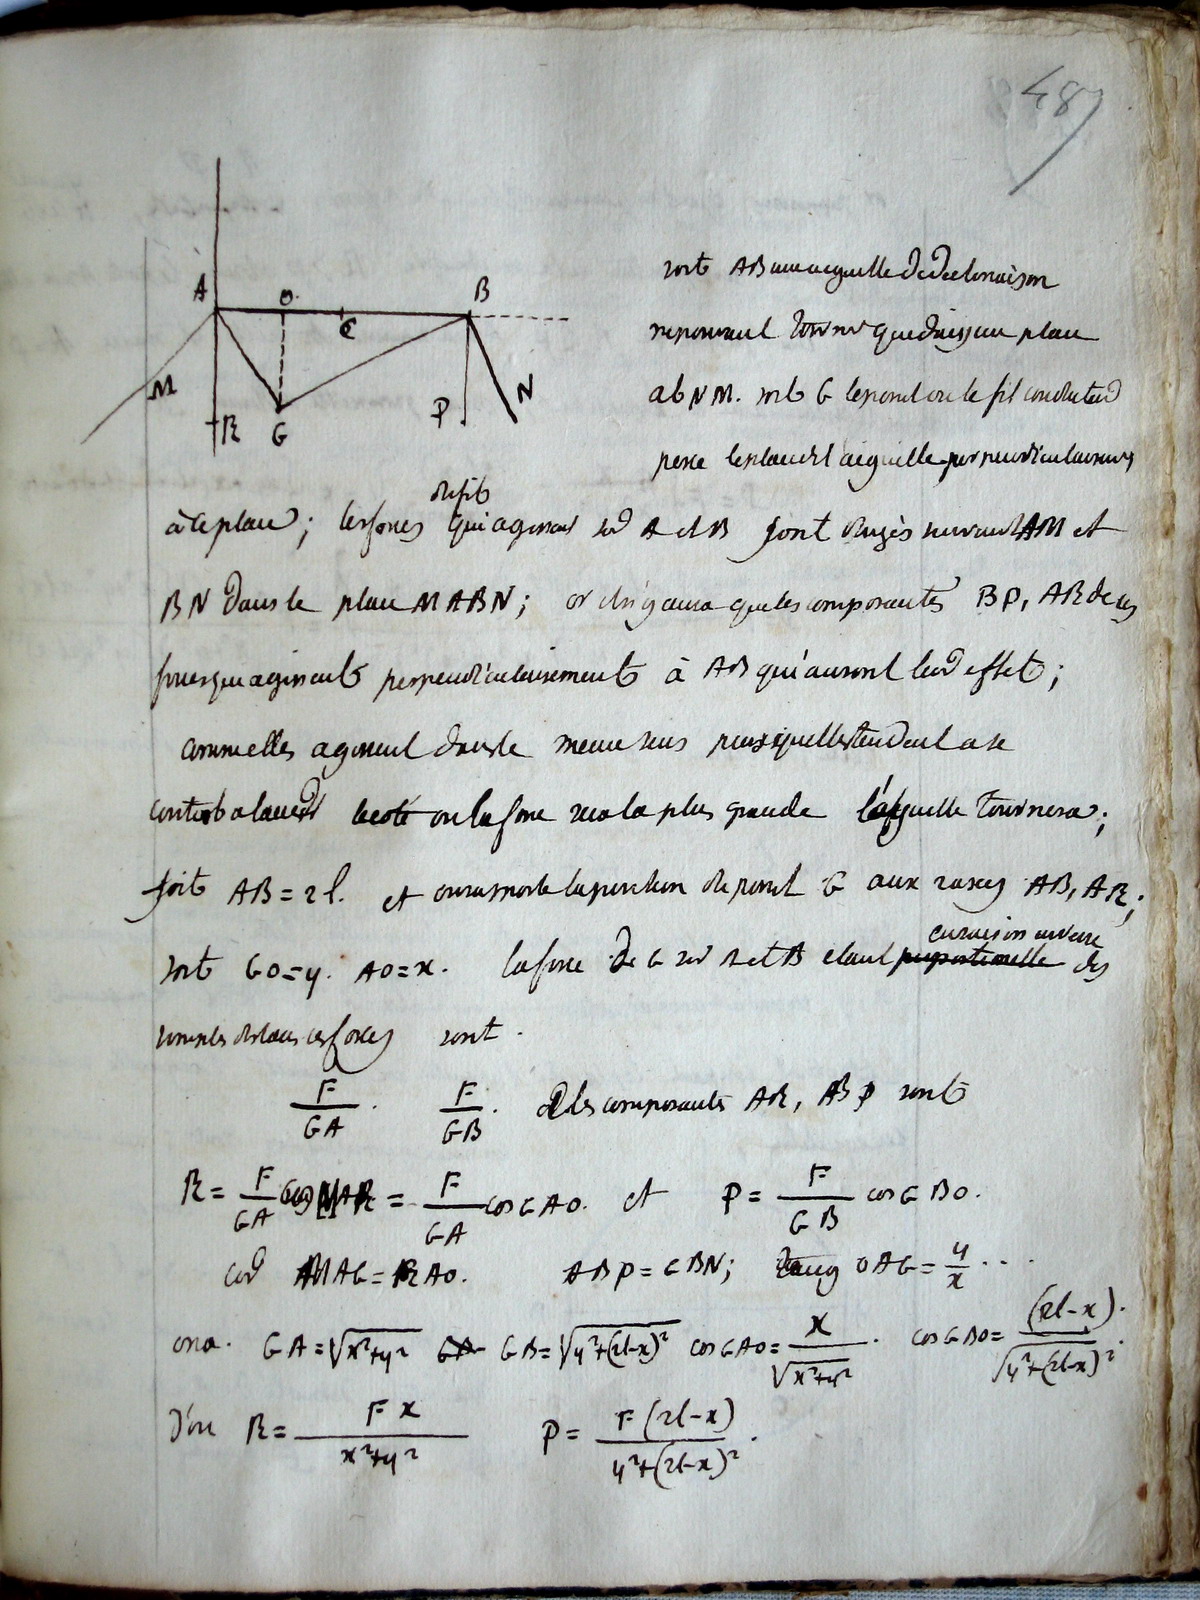 487
A O C B
M R G P N
soit AB une aeguille de declinaison
ne pouvant tourner que dans un plan
abNM. soit G le point ou le fil conducteur
perce le plan de l'aiguille perpendiculairement
à ce plan; les forces du fil qui agissent sur A et B sont dirigés suivant AM et
BN dans le plan MABN; or il n'y aura que les composantes BP, AR de ces
forces qui agissent perpendiculairement à AB qui auront leur effet;
comme elles agissent dans le meme sens puisqu'elles tendent a se
contrebalancer le coté ou la force sera la plus grande l'aiguille tournera;
soit AB = 2l. et on rapporte la position du point G aux axes AB, AR;
soit GO = y. AO = x. la force de G sur A et B etant proportionelle en raison inverse des
simples distances ces forces sont.
F/GA . F/GB . et les composantes AR, BP sont
R = F/GA cos MAR = F/GA cos GAO. et P = F/GB cos GBO.
car MAG = RAO. ABP = GBN; tang OAG = y/x ...
on a. GA = √x²+y² GB = √y²+(2l-x)² cos GAO = x/√x²+y² . cos GBO = (2l-x)/√y²+(2l-x)² .
d'ou R = F x/x²+y² P = F(2l-x)/y²+(2l-x)² .